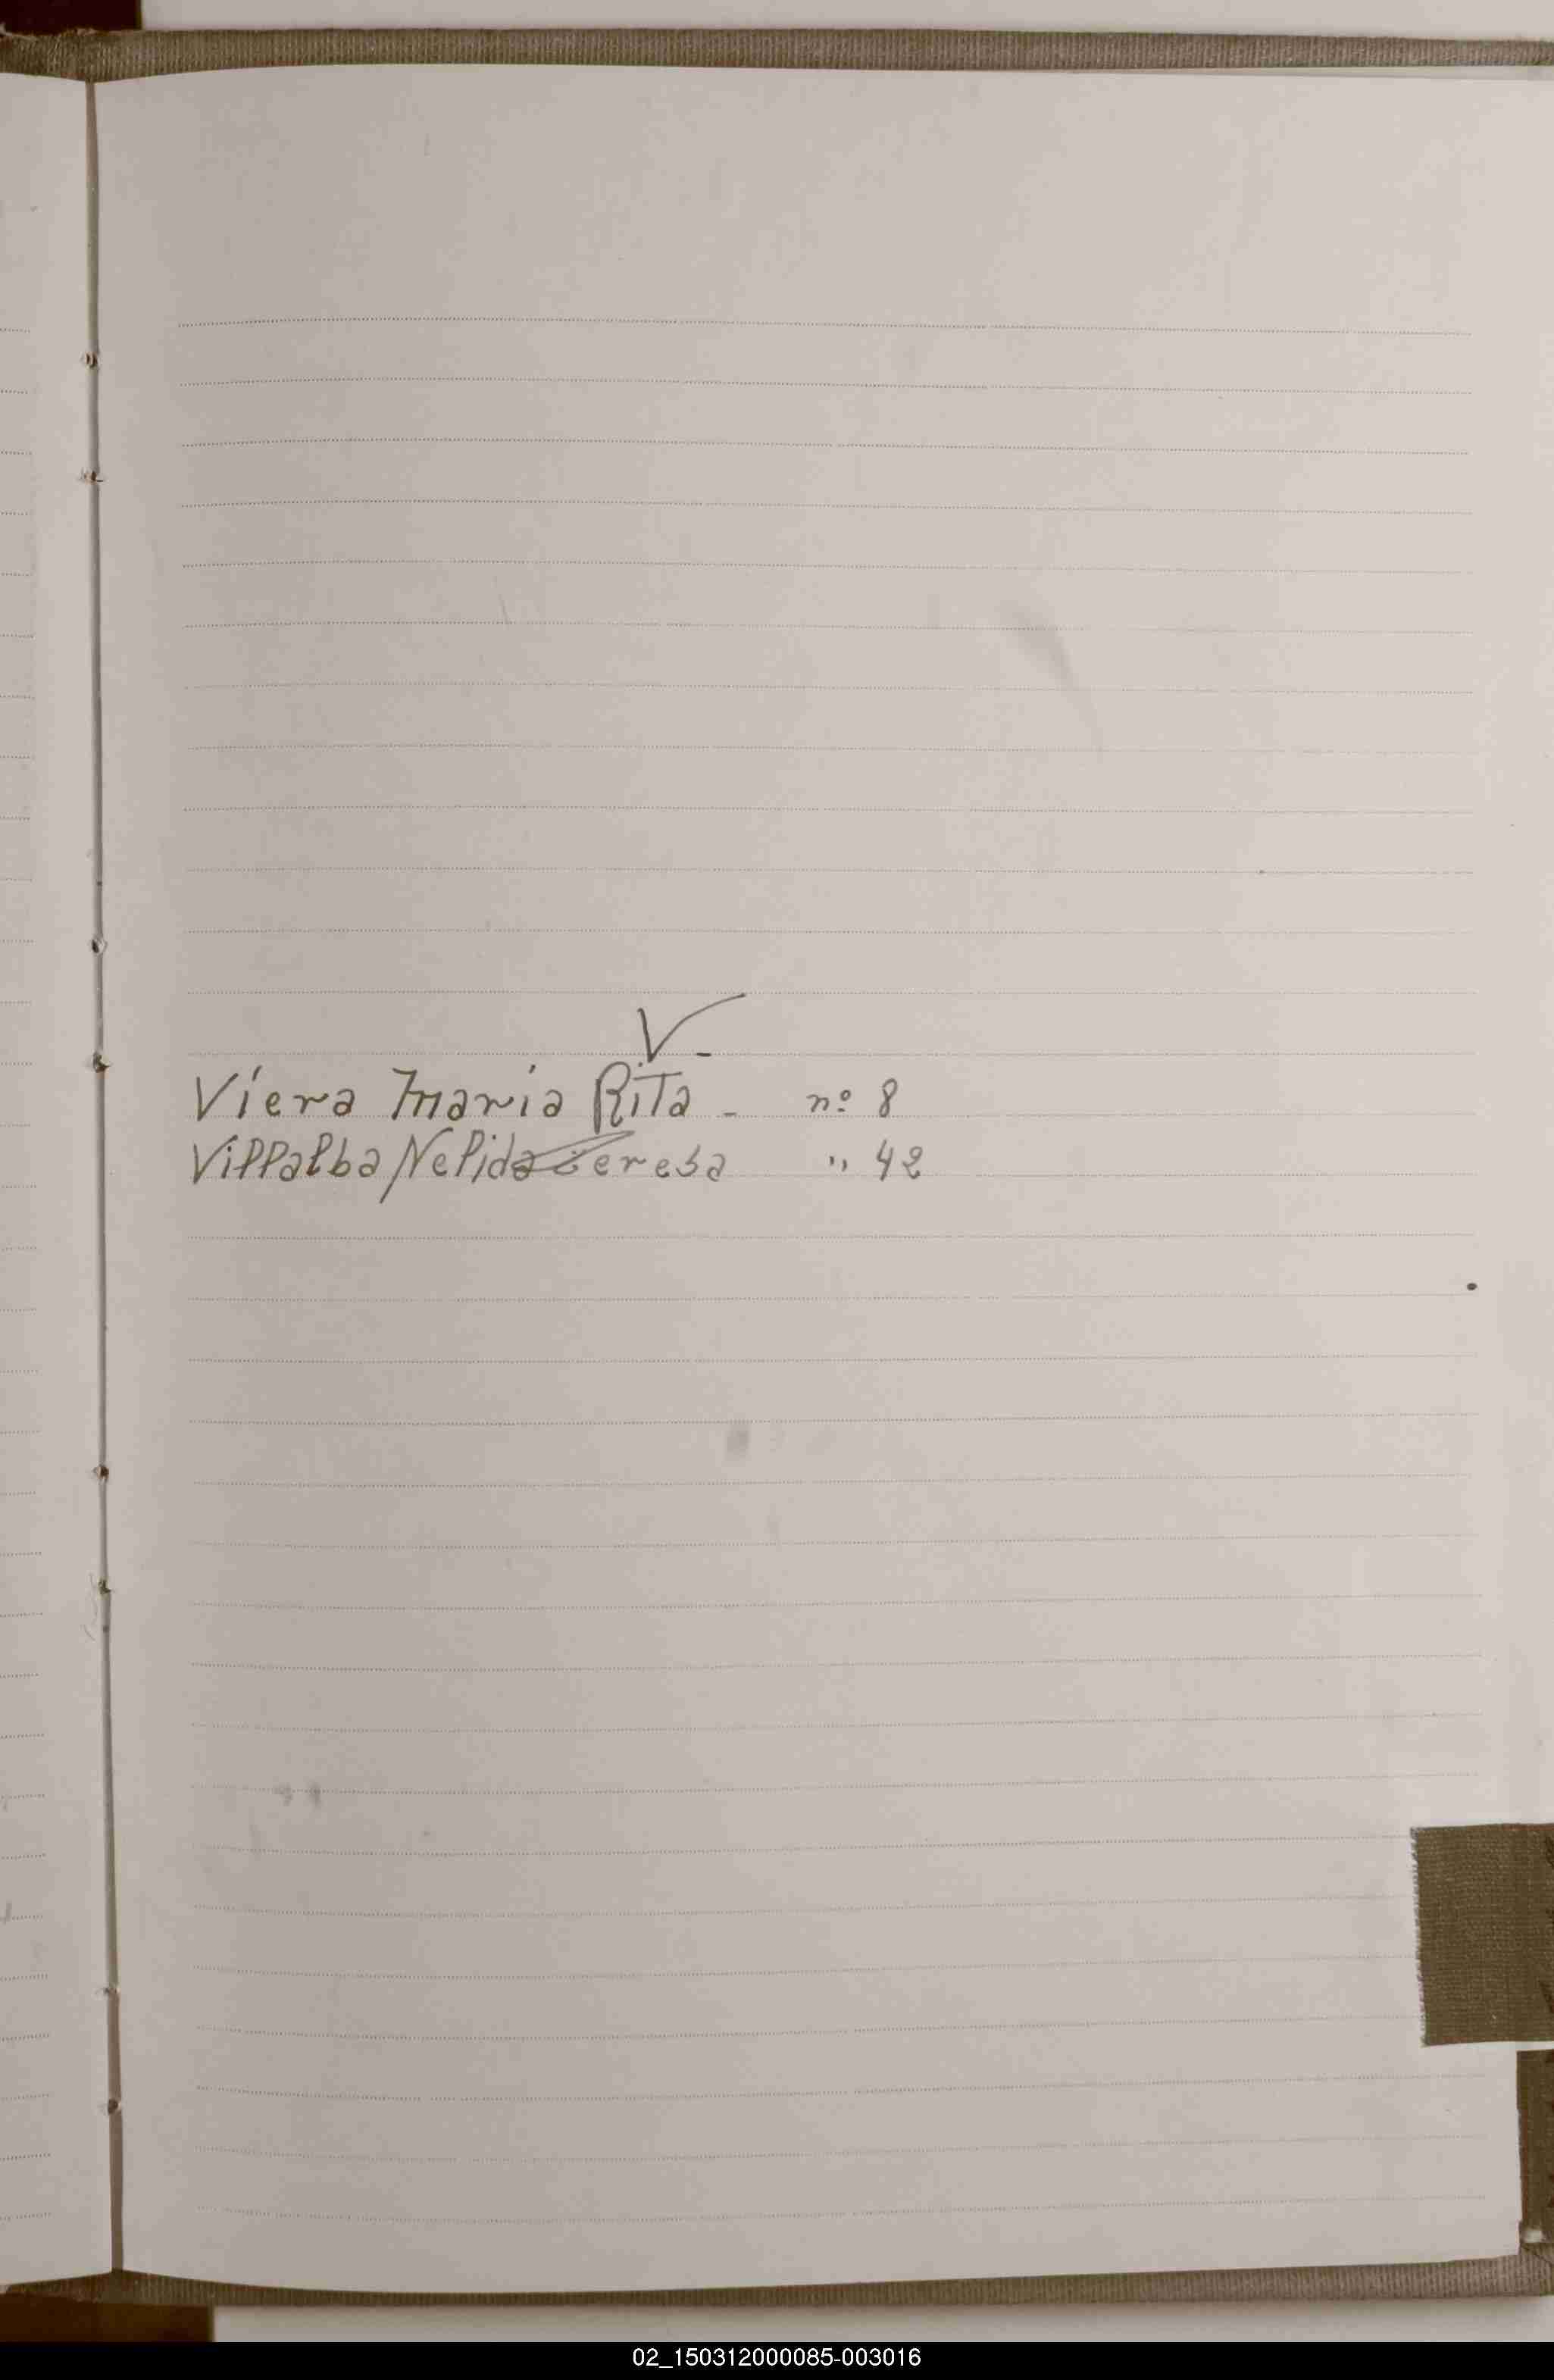 V-
Viera Maria Rita - nº 8
Villalba Nelida Teresa " 42
02_150312000085-003016